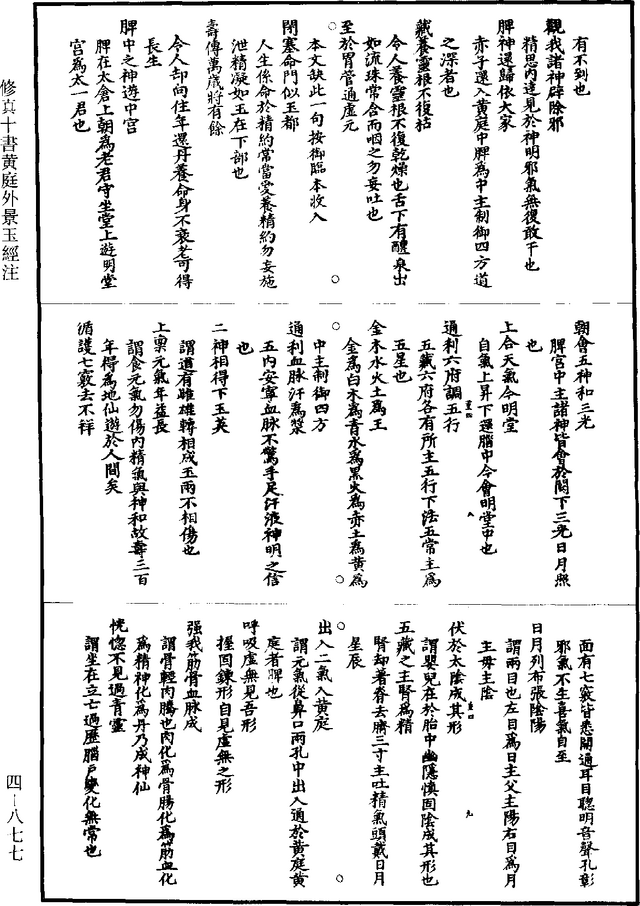 有不到也
觀我諸神辟除邪
精思內達見於神明邪氣無復敢干也
脾神還歸依大家
赤子還入黃庭中脾為中主制御四方道
之深者也
藏養靈根不復枯
令人養靈根不復乾燥也舌下有醴泉出
如流珠常含而咽之勿妄吐也
至於胃管通虛元
本文缺此一句按御臨本收入
閉塞命門似玉都
人生係命於精約常當愛養精約勿妄施
泄精凝如玉在下部也
壽傳萬歲將有餘
令人却向住年還丹養命身不衰老可得
長生
脾中之神遊中宮
脾在太倉上朝為老君守坐堂上遊明堂
宮為太一君也
朝會五神和三光
脾宮中主諸神皆會於闕下三光日月照
也
上合天氣令明堂
自氣上昇下還腦中令會明堂中也
通利六府調五行
五藏六府各有所主五行下法五常主為
五星也
金木水火土為王
金為白木為青水為黑火為赤土為黃為
中主制御四方
通利血脉汗為漿
五內安寧血脉不驚手足汗液神明之信
也
二神相得下玉英
謂道有雌雄轉相成玉兩不相傷也
上稟元氣年益長
謂食元氣勿傷內精氣與神和故壽三百
年得為地仙遊於人間矣
循護七竅去不祥
面有七竅皆悉開通耳目聰明音聲孔彰
邪氣不生喜氣自至
日月列布張陰陽
謂兩目也左目為日主父主陽右目為月
主母主陰
伏於太陰成其形
謂嬰兒在於胎中幽隱慎固陰成其形也
五藏之主腎為精
腎却著脊去臍三寸主吐精氣頭戴日月
星辰
出入二氣入黃庭
謂元氣從鼻口兩孔中出入通於黃庭黃
庭者脾也
呼吸虛無見吾形
握固鍊形自見虛無之形
强我筋骨血脉成
謂骨輕肉騰也肉化為骨腸化為筋血化
為精神化為丹乃成神仙
恍惚不見過青靈
謂坐在立亡過歷腦戶變化無常也
修真十書黃庭外景玉經注
四—八七七